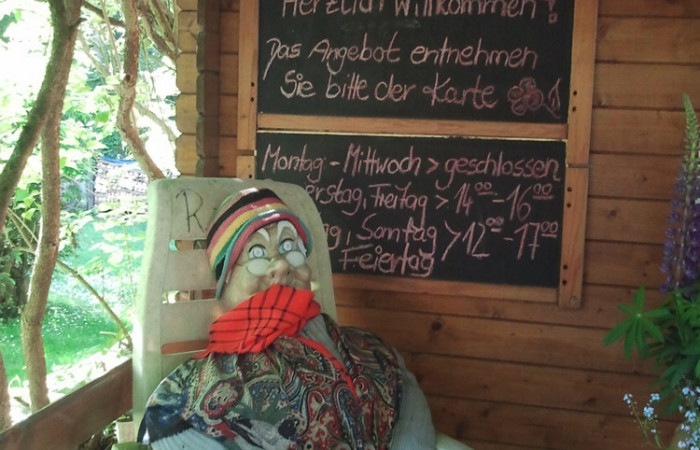 Herzlich Willkommen!
Das Angebot entnehmen
Sie bitte der Karte
Montag - Mittwoch > geschlossen
erstag, Freitag > 14⁰⁰ - 16⁰⁰
g, Sonntag > 12⁰⁰ - 17⁰⁰
Feiertag
R